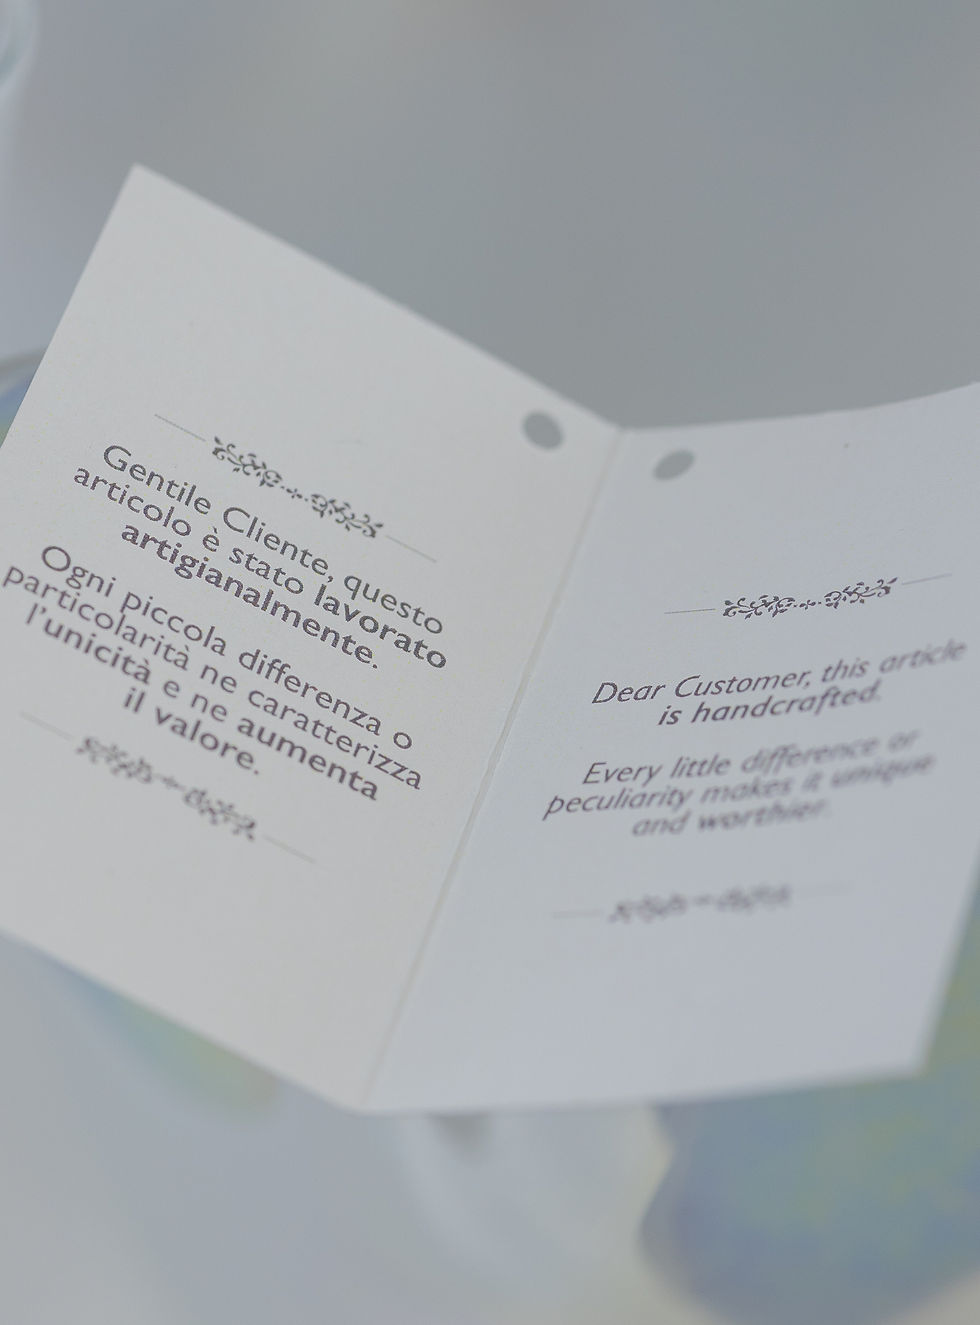 Gentile Cliente, questo
articolo è stato lavorato
artigianalmente.
Ogni piccola differenza o
particolarità ne caratterizza
l'unicità e ne aumenta
il valore.
Dear Customer, this article
is handcrafted.
Every little difference or
peculiarity makes it unique
and worthier.